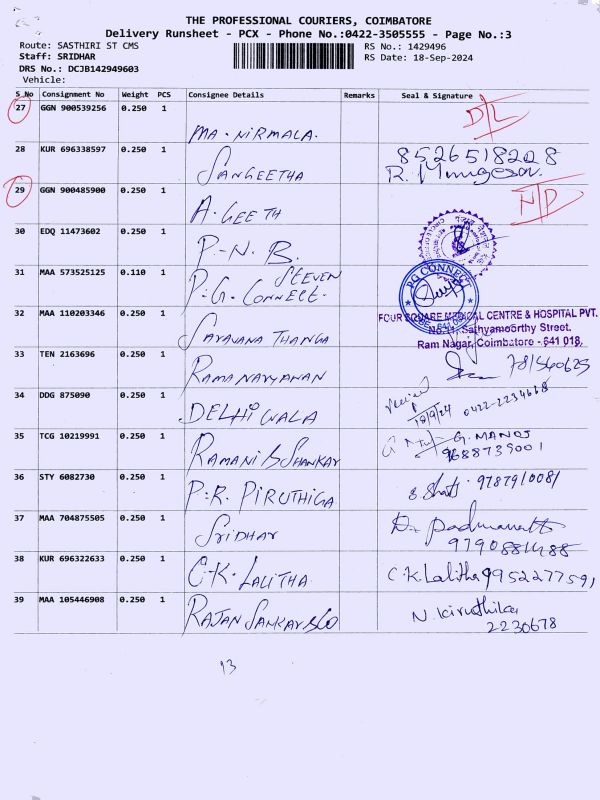 THE PROFESSIONAL COURIERS, COIMBATORE
Delivery Runsheet - PCX - Phone No.:0422-3505555 - Page No.:3
Route: SASTHIRI ST CMS
RS No.: 1429496
Staff: SRIDHAR
RS Date: 18-Sep-2024
DRS No.: DCJB142949603
Vehicle:
S No Consignment No Weight PCS Consignee Details Remarks Seal & Signature
27 GGN 900539256 0.250 1 MA. NIRMALA. D/L
28 KUR 696338597 0.250 1 SANGEETHA 8526518208
R. Murugesan.
29 GGN 900485900 0.250 1 A. GEETH N/D
30 EDQ 11473602 0.250 1 P-N. B.
31 MAA 573525125 0.110 1 STEEVEN
P.G. CONNECT. PG CONNECT
32 MAA 110203346 0.250 1 SARAVANA THANGA FOUR SQUARE MEDICAL CENTRE & HOSPITAL PVT.
No.11, Sathyamoorthy Street,
Ram Nagar, Coimbatore - 641 018.
33 TEN 2163696 0.250 1 RAMANARYANAN
34 DDG 875090 0.250 1 DELHIWALA received
18/9/24 0422-2234668
35 TCG 10219991 0.250 1 RAMANI B SHANKAR G. MANOJ
9688739001
36 STY 6082730 0.250 1 P.R. PIRUTHIGA 9787910081
37 MAA 704875505 0.250 1 SRIDHAR D. Padmanath
38 KUR 696322633 0.250 1 C-K. LALITHA C.K. Lalitha 9952277591
39 MAA 105446908 0.250 1 RAJAN SANKAR N. kiruthika
2230678
13